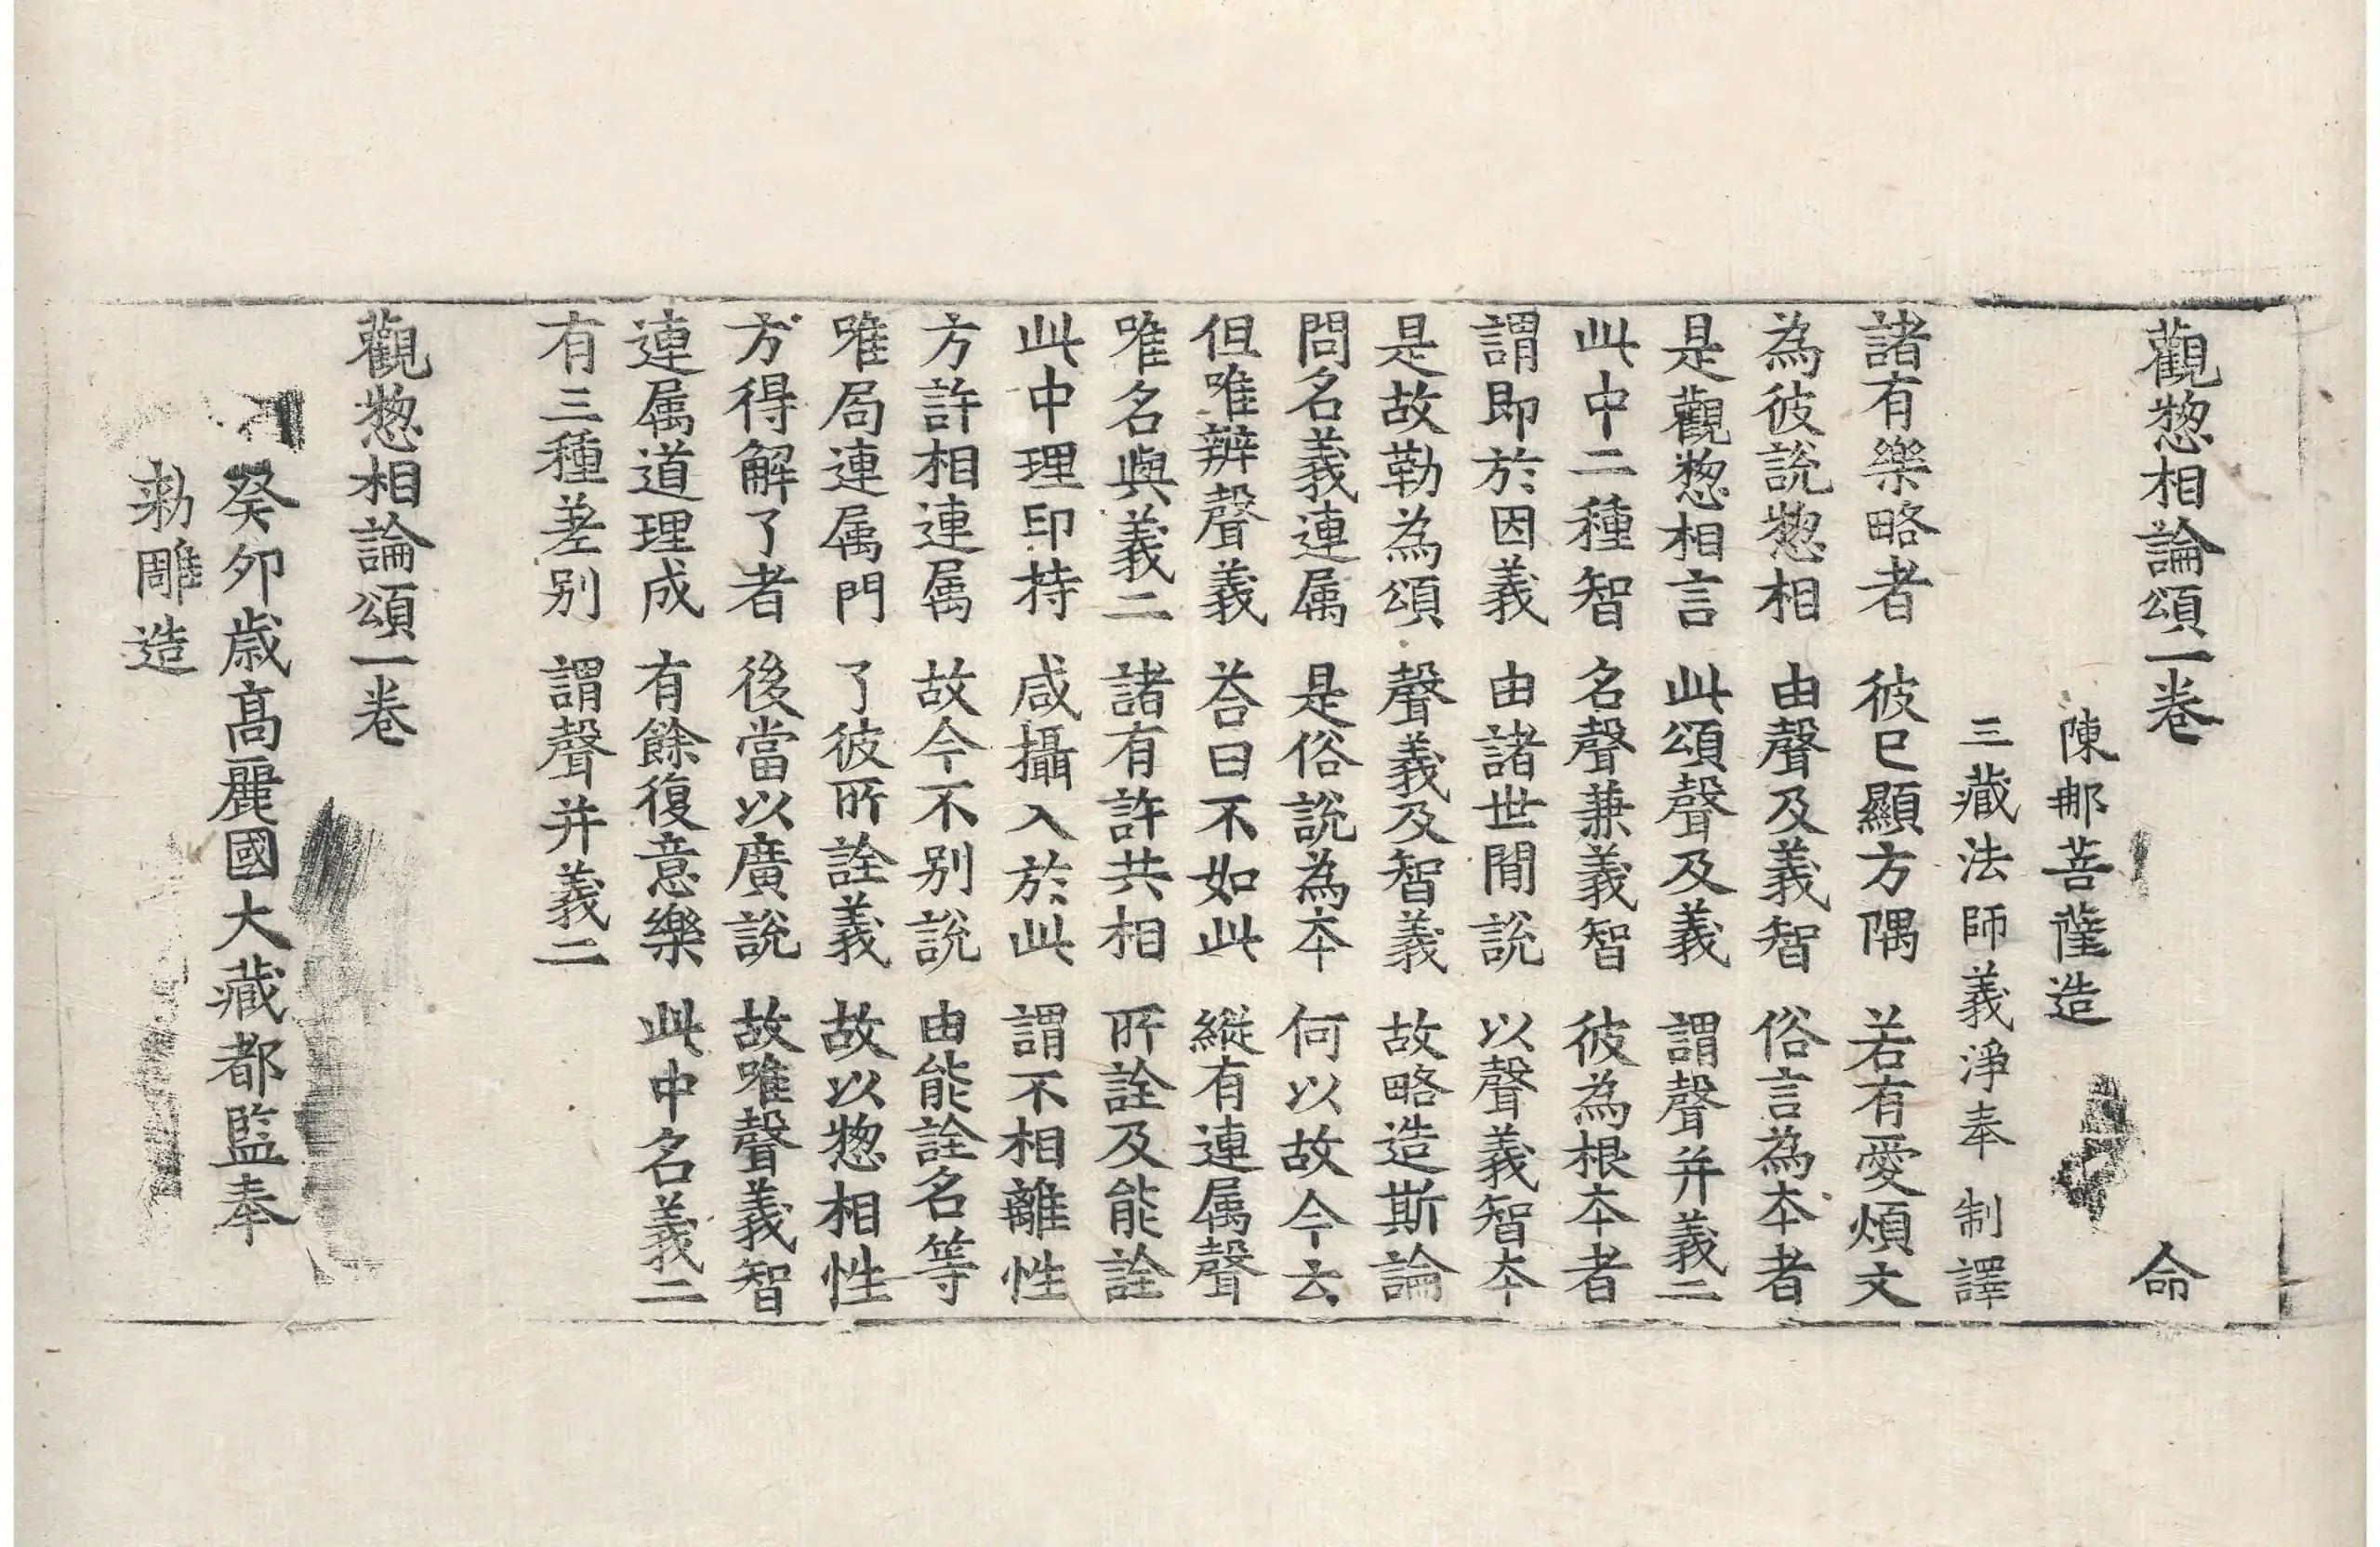 觀揔相論頌一卷　命
陳那菩薩造
三藏法師義淨奉　制譯
諸有樂略者　彼已顯方隅　若有愛煩文
為彼說揔相　由聲及義智　俗言為夲者
是觀揔相言　此頌聲及義　謂聲并義二
此中二種智　名聲兼義智　彼為根夲者
謂即於因義　由諸世間說　以聲義智夲
是故勒為頌　聲義及智義　故略造斯論
問名義連属　是俗說為夲　何以故今玄
但唯辨聲義　荅曰不如此　縱有連属聲
唯名與義二　諸有許共相　所詮及能詮
此中理印持　咸攝入於此　謂不相離性
方許相連属　故今不别說　由能詮名等
唯局連属門　了彼所詮義　故以揔相性
方得解了者　後當以廣說　故唯聲義智
連属道理成　有餘復意樂　此中名義二
有三種差别　謂聲并義二
觀揔相論頌一卷
癸卯歲高麗國大藏都監奉
勑雕造